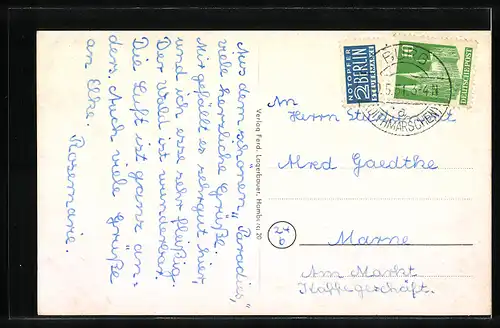 Aus dem schönen „Paradies“
viele herzliche Grüße.
Mir gefällt es sehr gut hier,
und ich esse sehr fleißig.
Der Wald ist wunderbar.
Die Luft ist ganz an-
ders. Auch viele Grüße
an Elke.
Rosemarie.
Verlag Ferd. Lagerbauer, Hamburg 20
NOTOPFER
2 BERLIN
STEUERMARKE
10
DEUTSCHE POST
DITHMARSCHEN
An
Herrn
Alfred Gaedthe
24
b
Marne
Am Markt
Kaffeegeschäft.